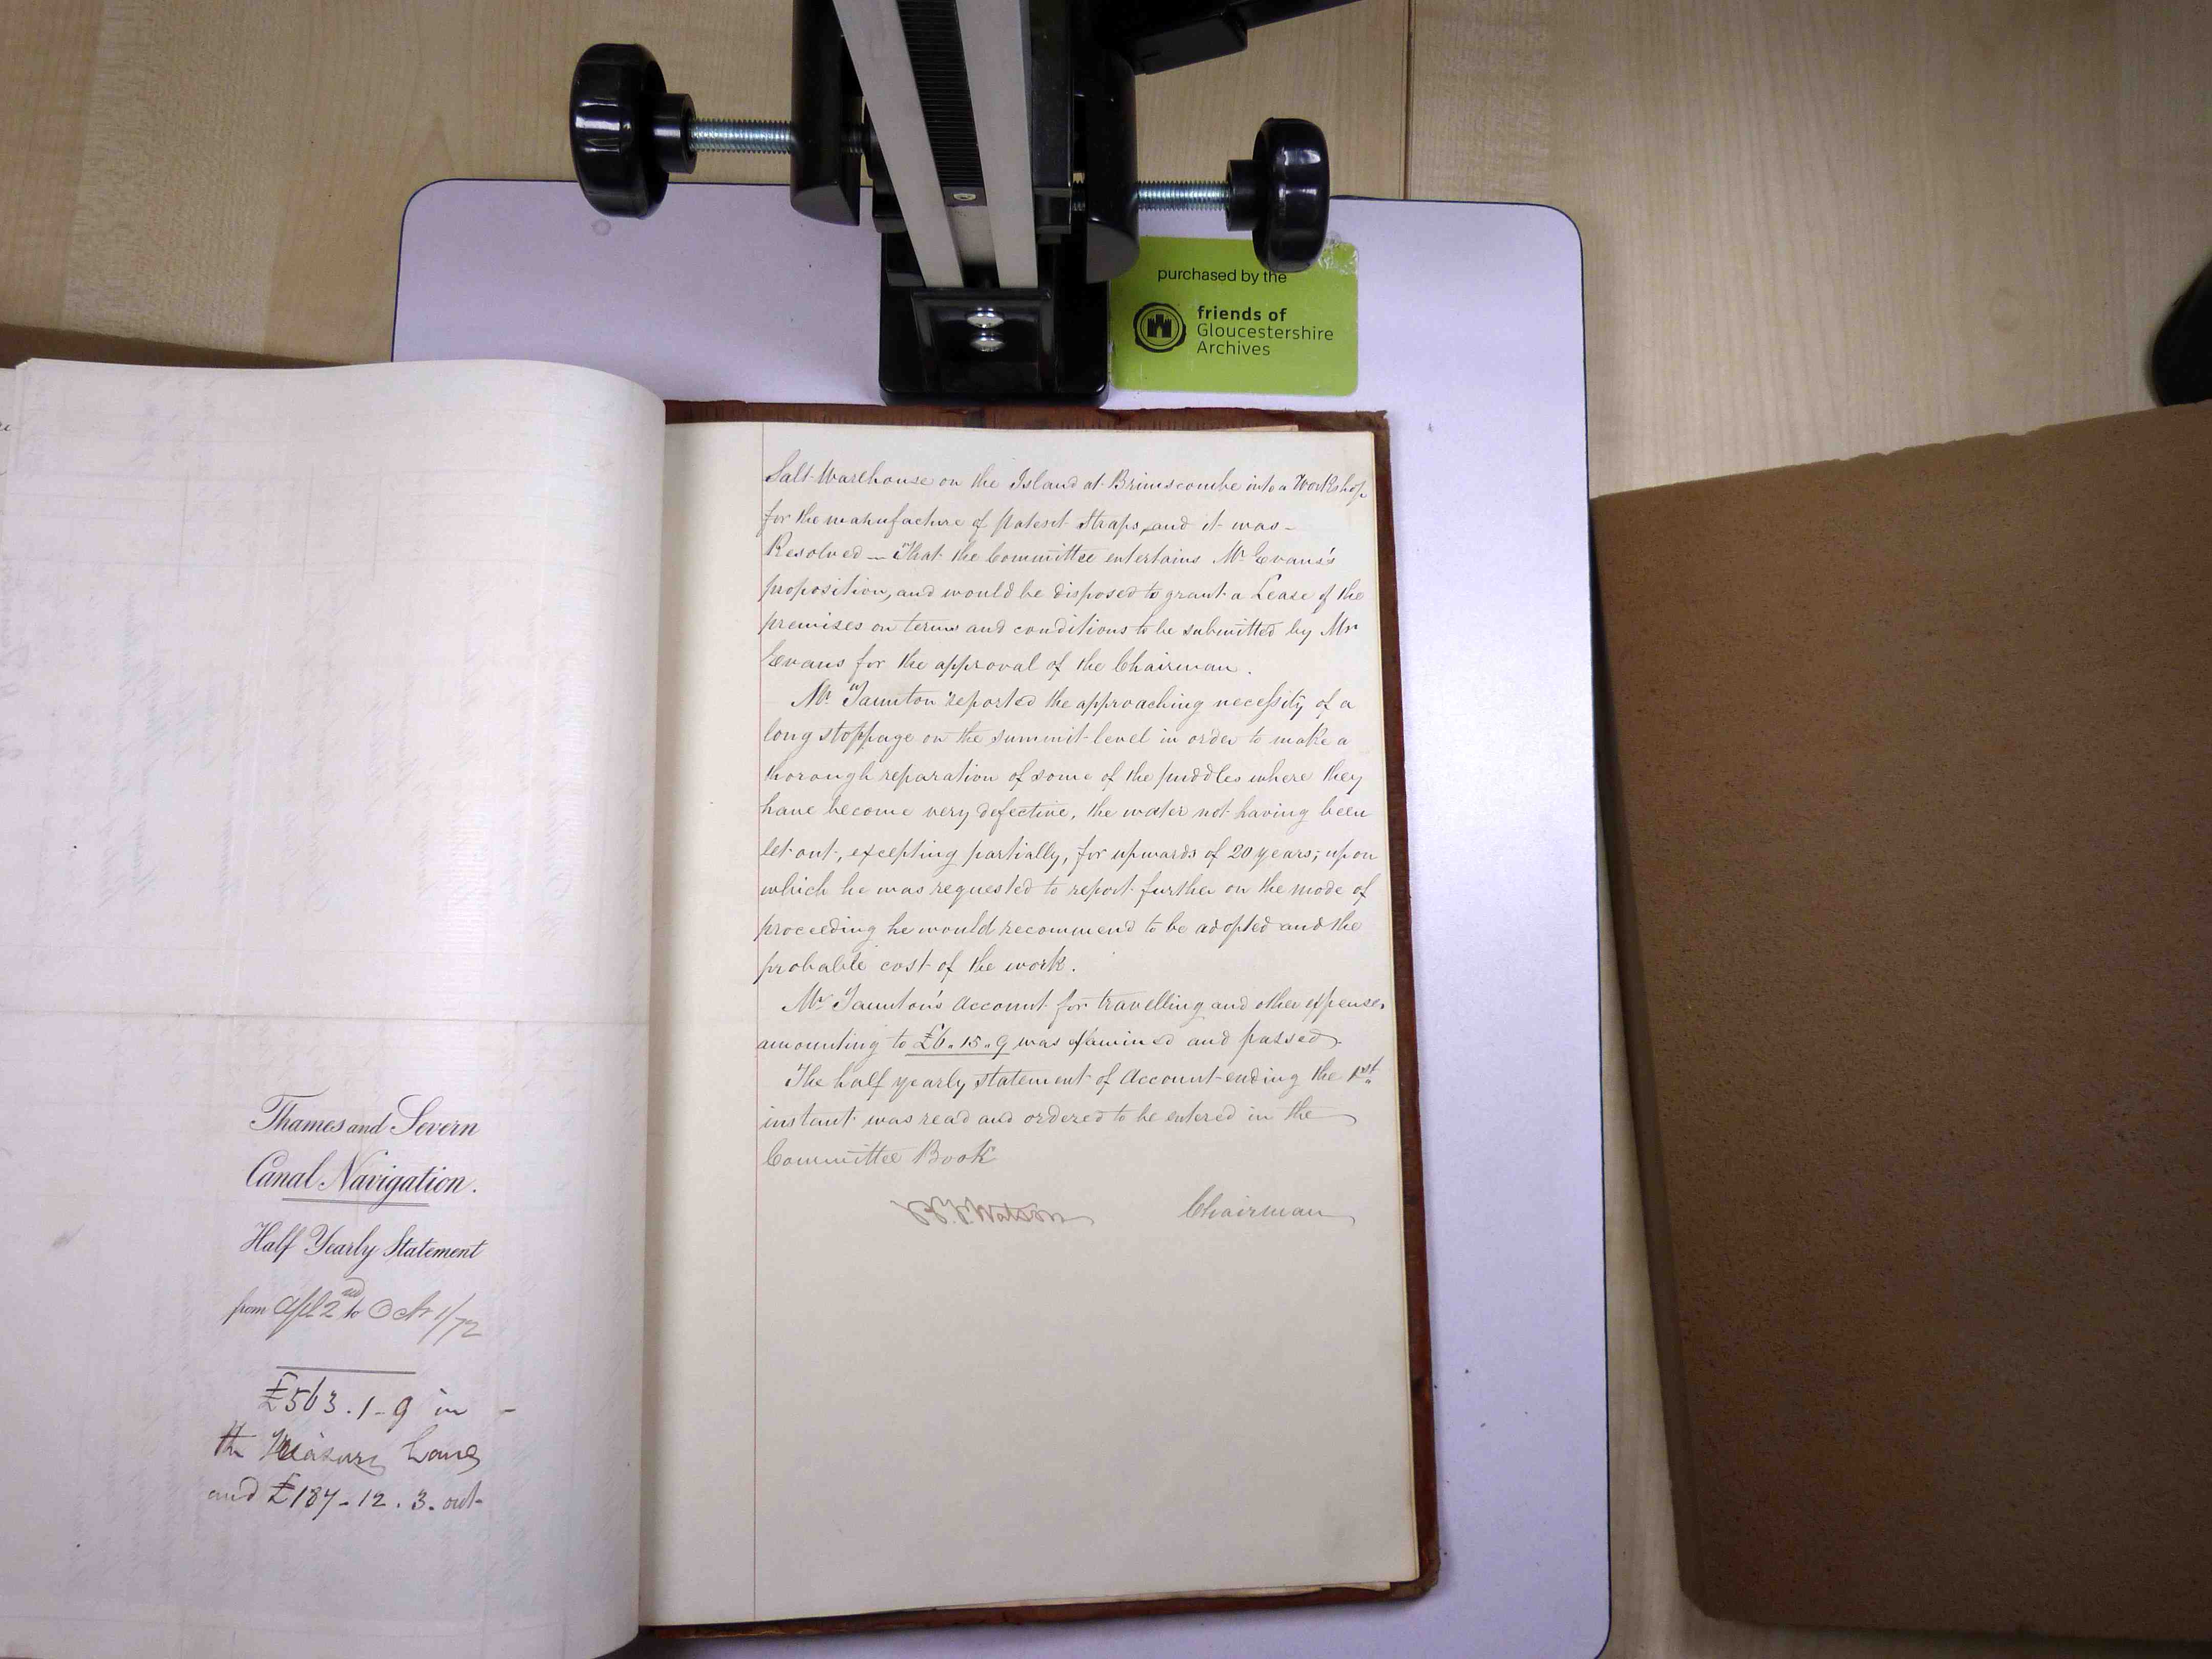 purchased by the
friends of
Gloucestershire
Archives
Thames and Severn
Canal Navigation.
Half Yearly Statement
from Apl 2nd to Octr 1/72
£563.1-9 in -
the Treasurers hands
and £187-12.3. out
Salt Warehouse on the Island at Brimscombe into a Workshop
for the manufacture of patent Straps, and it was -
Resolved - That the Committee entertains Mr Evans's
proposition, and would be disposed to grant a Lease of the
premises on terms and conditions to be submitted by Mr
Evans for the approval of the Chairman.
Mr. Taunton reported the approaching necessity of a
long stoppage on the summit-level in order to make a
thorough reparation of some of the puddles where they
have become very defective, the water not having been
let out, excepting partially, for upwards of 20 years; upon
which he was requested to report further on the mode of
proceeding he would recommend to be adopted and the
probable cost of the work.
Mr Taunton's Account for travelling and other expenses
amounting to £6.15.9 was examined and passed.
The half yearly statement of Account ending the 1st
instant was read and ordered to be entered in the
Committee Book
Watson Chairman